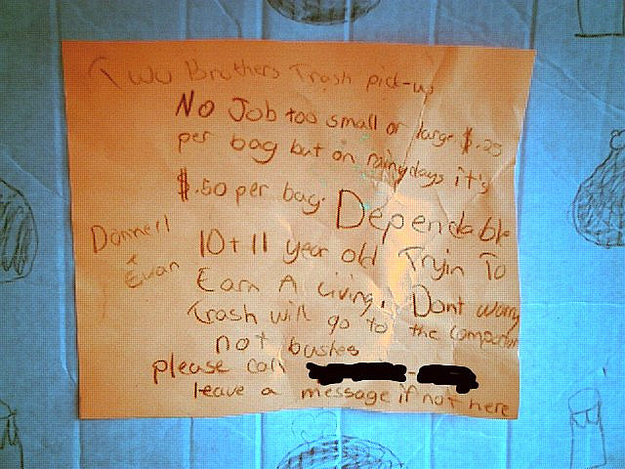 Two Brothers Trash pick-up
No Job too small or large $.25
per bag but on rainy days it's
$.50 per bag. Dependable
Donnell + Evan
10 + 11 year old Tryin To
Earn A Living. Dont worry
Trash will go to the compactor
not bushes
please call
leave a message if not here